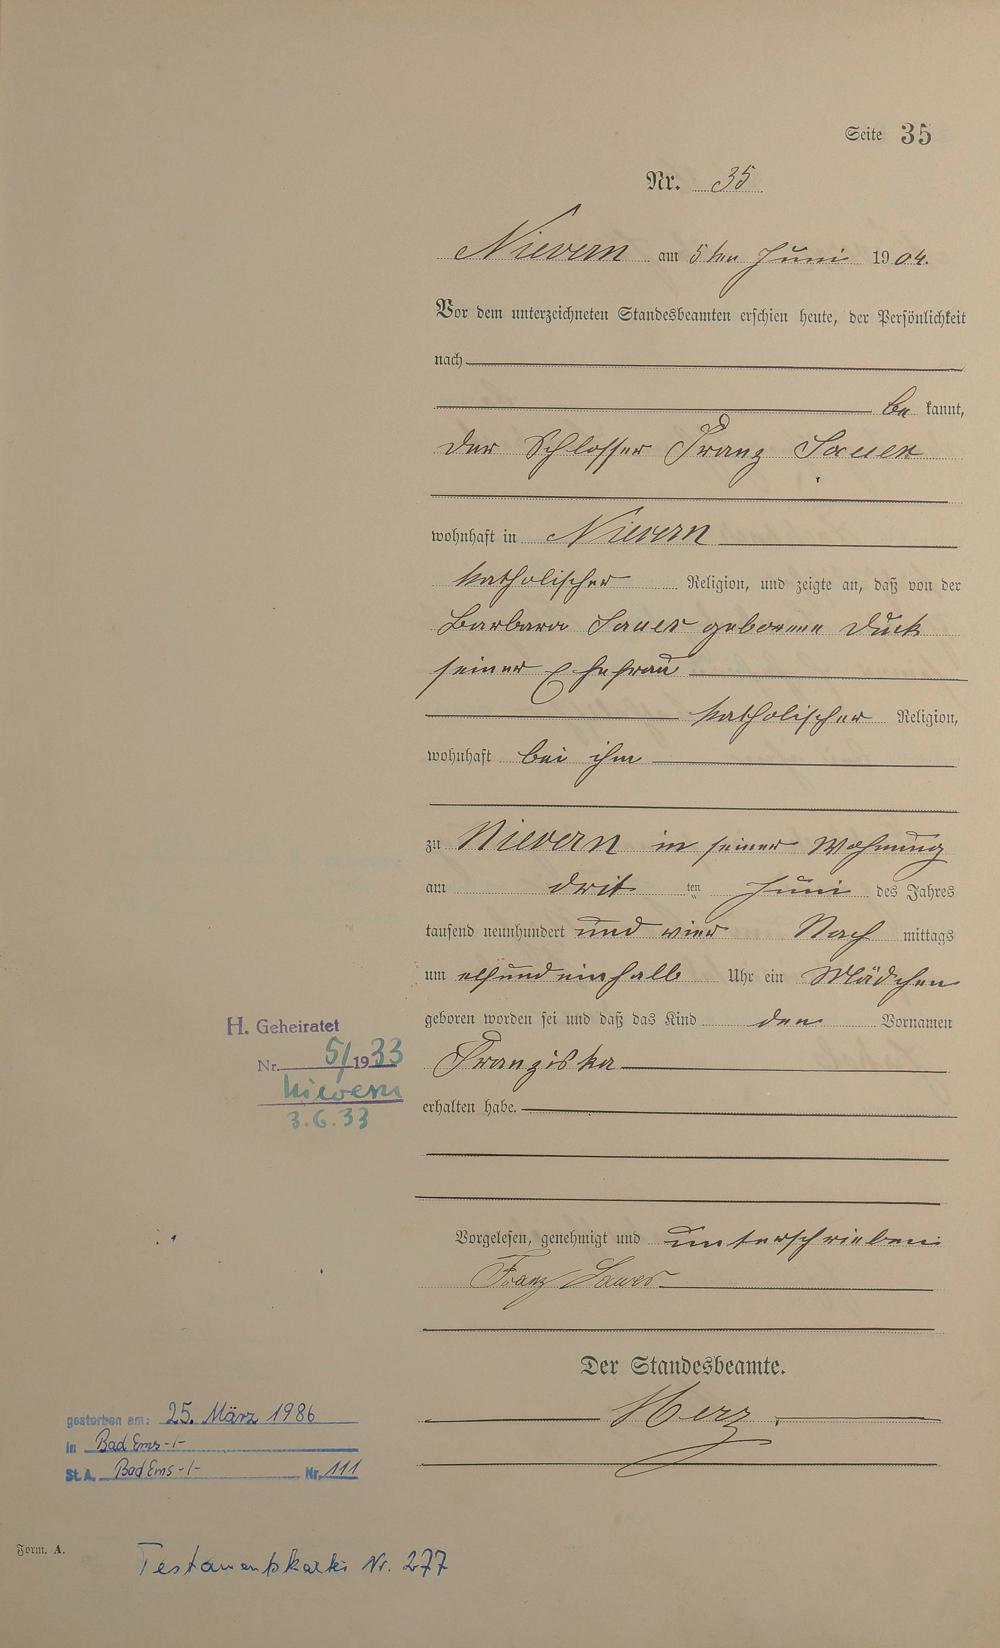 Seite 35
Nr. 35
Nievern am 5ten Juni 1904.
Vor dem unterzeichneten Standesbeamten erschien heute, der Persönlichkeit
nach
be kannt,
der Schlosser Franz Sauer
wohnhaft in Nievern
katholischer Religion, und zeigte an, daß von der
Barbara Sauer geborene Duck
seiner Ehefrau
katholischer Religion,
wohnhaft bei ihm
zu Nievern in seiner Wohnung
am drit ten Juni des Jahres
tausend neunhundert und vier Nach mittags
um elfundeinhalb Uhr ein Mädchen
geboren worden sei und daß das Kind den Vornamen
Franziska
erhalten habe.
H. Geheiratet
Nr. 5/1933
Nievern
3.6.33
Vorgelesen, genehmigt und unterschrieben
Franz Sauer
Der Standesbeamte.
Herz
gestorben am: 25. März 1986
in Bad Ems -/-
St.A. Bad Ems -/- Nr. 111
Form. A.
Testamentskartei Nr. 277